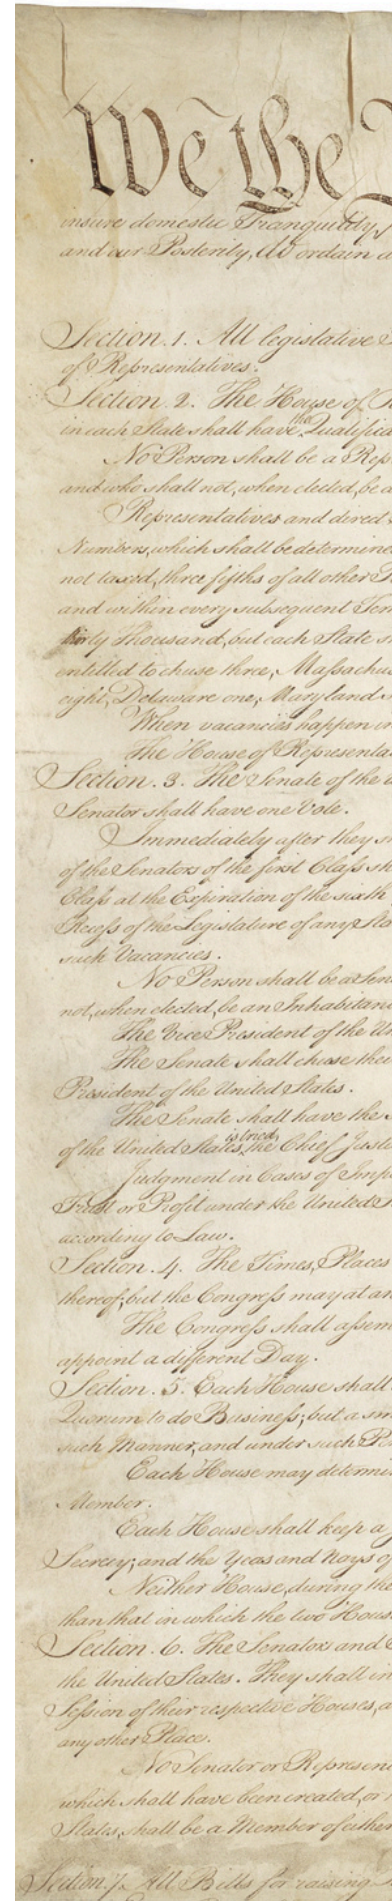 We the
insure domestic Tranquility,
and our Posterity, do ordain a
Section. 1. All legislative
of Representatives.
Section. 2. The House of
in each State shall have the Qualifica
No Person shall be a Rep
and who shall not, when elected, be a
Representatives and direct
Numbers, which shall be determine
not taxed, three fifths of all other
and within every subsequent Ter
thirty Thousand, but each State s
entitled to chuse three, Massachus
eight, Delaware one, Maryland
When vacancies happen in
The House of Representa
Section. 3. The Senate of the
Senator shall have one Vote.
Immediately after they
of the Senators of the first Class sh
Class at the Expiration of the sixth
Recess of the Legislature of any Sta
such Vacancies.
No Person shall be a Sen
not, when elected, be an Inhabitan
The Vice President of the Un
The Senate shall chuse thei
President of the United States.
The Senate shall have the
of the United States is tried, the Chief Justi
Judgment in Cases of Imp
Trust or Profit under the United
according to Law.
Section. 4. The Times, Places
thereof; but the Congress may at an
The Congress shall assem
appoint a different Day.
Section. 5. Each House shall
Quorum to do Business; but a sm
such Manner, and under such Pe
Each House may determi
Member.
Each House shall keep a
Secrecy; and the Yeas and Nays of
Neither House, during the
than that in which the two Hous
Section. 6. The Senators and
the United States. They shall in
Session of their respective Houses, a
any other Place.
No Senator or Represen
which shall have been created, or
States, shall be a Member of either
Section. 7. All Bills for raising